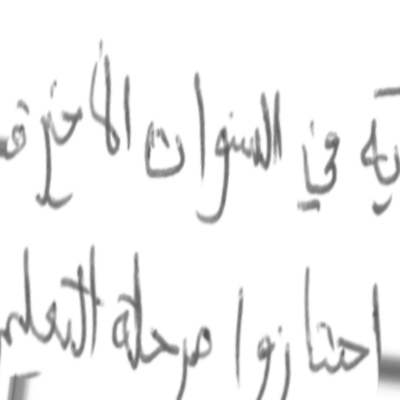 ية في السنوات الأخيرة
اجتازوا مرحلة التعليم